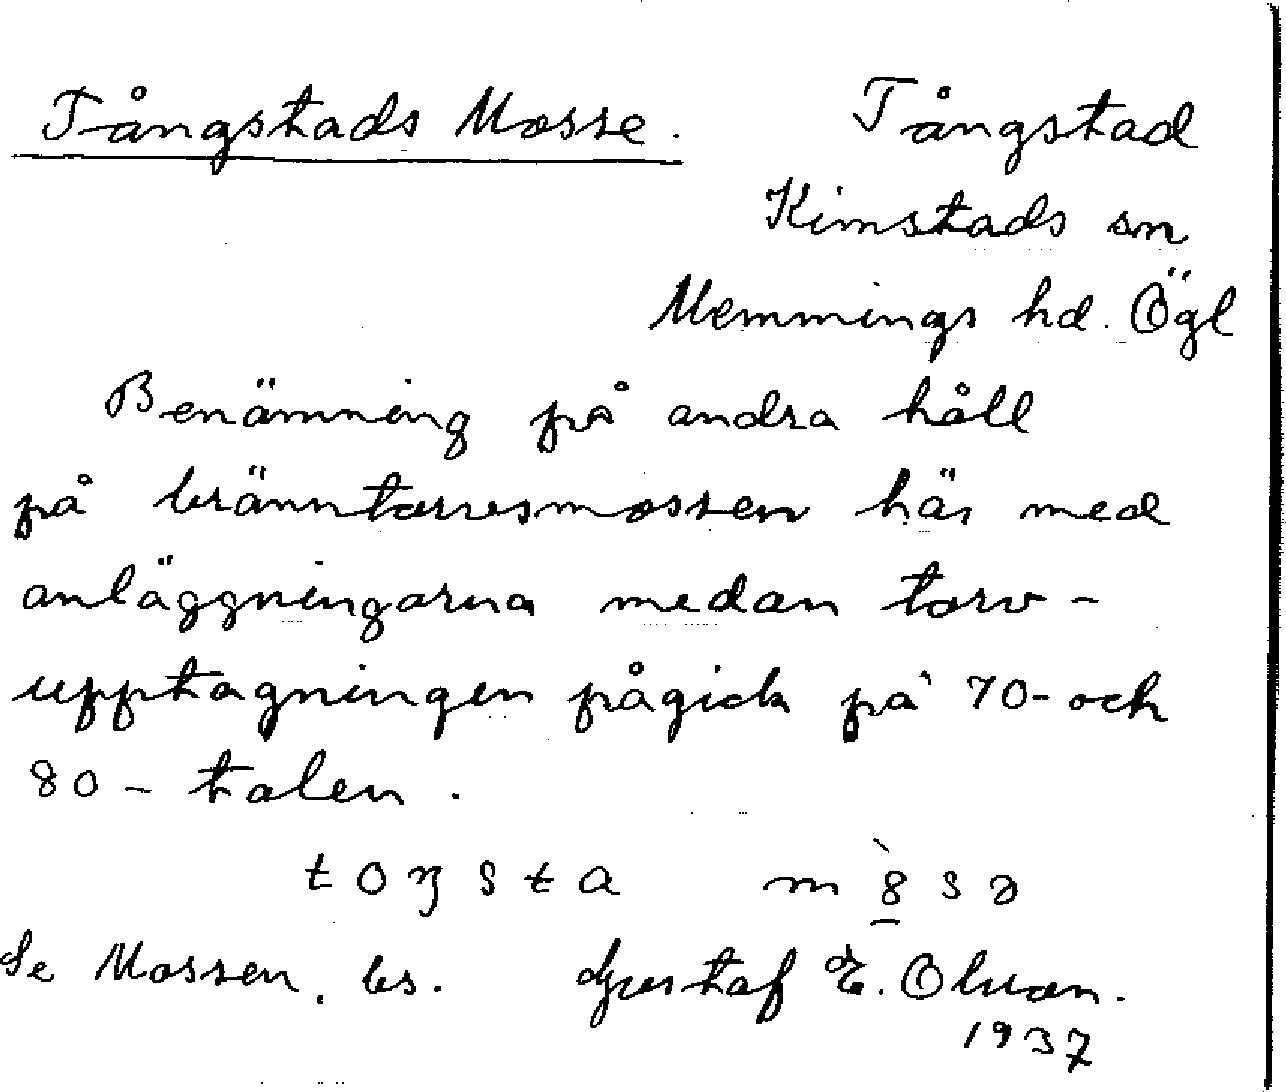 Tångstads Mosse. Tångstad
Kimstads sn
Memmings hd. Ögl
Benämning på andra håll
på bränntorvsmossen här med
anläggningarna medan torv-
upptagningen pågick på 70- och
80-talen.
toŋsta m8̱̀sə
Se Mossen, bs. Gustaf E. Olson.
1937